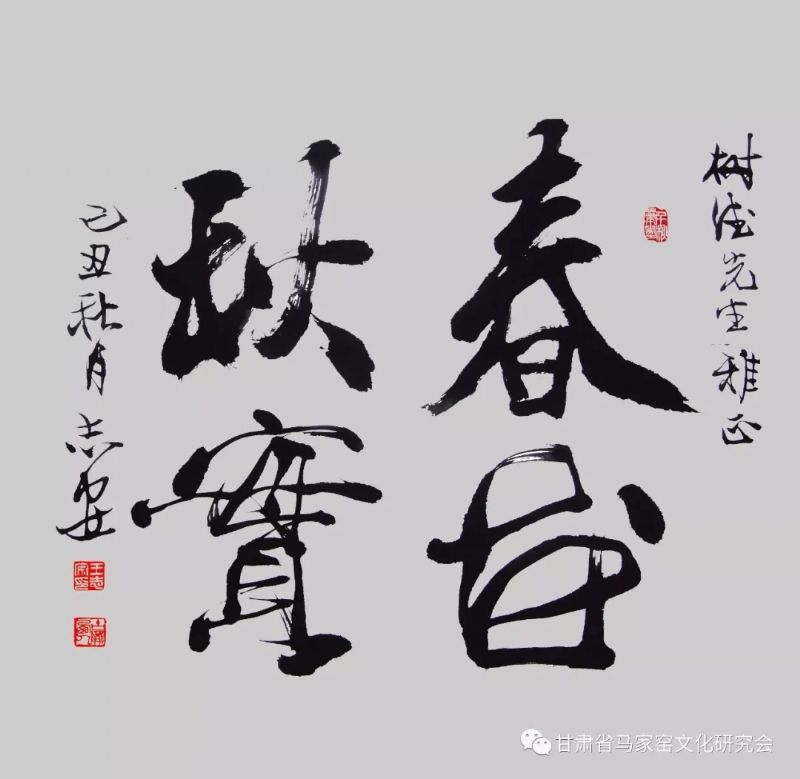 树德先生雅正
春華
秋實
己丑秋月志安
王志安印
甘肃省马家窑文化研究会